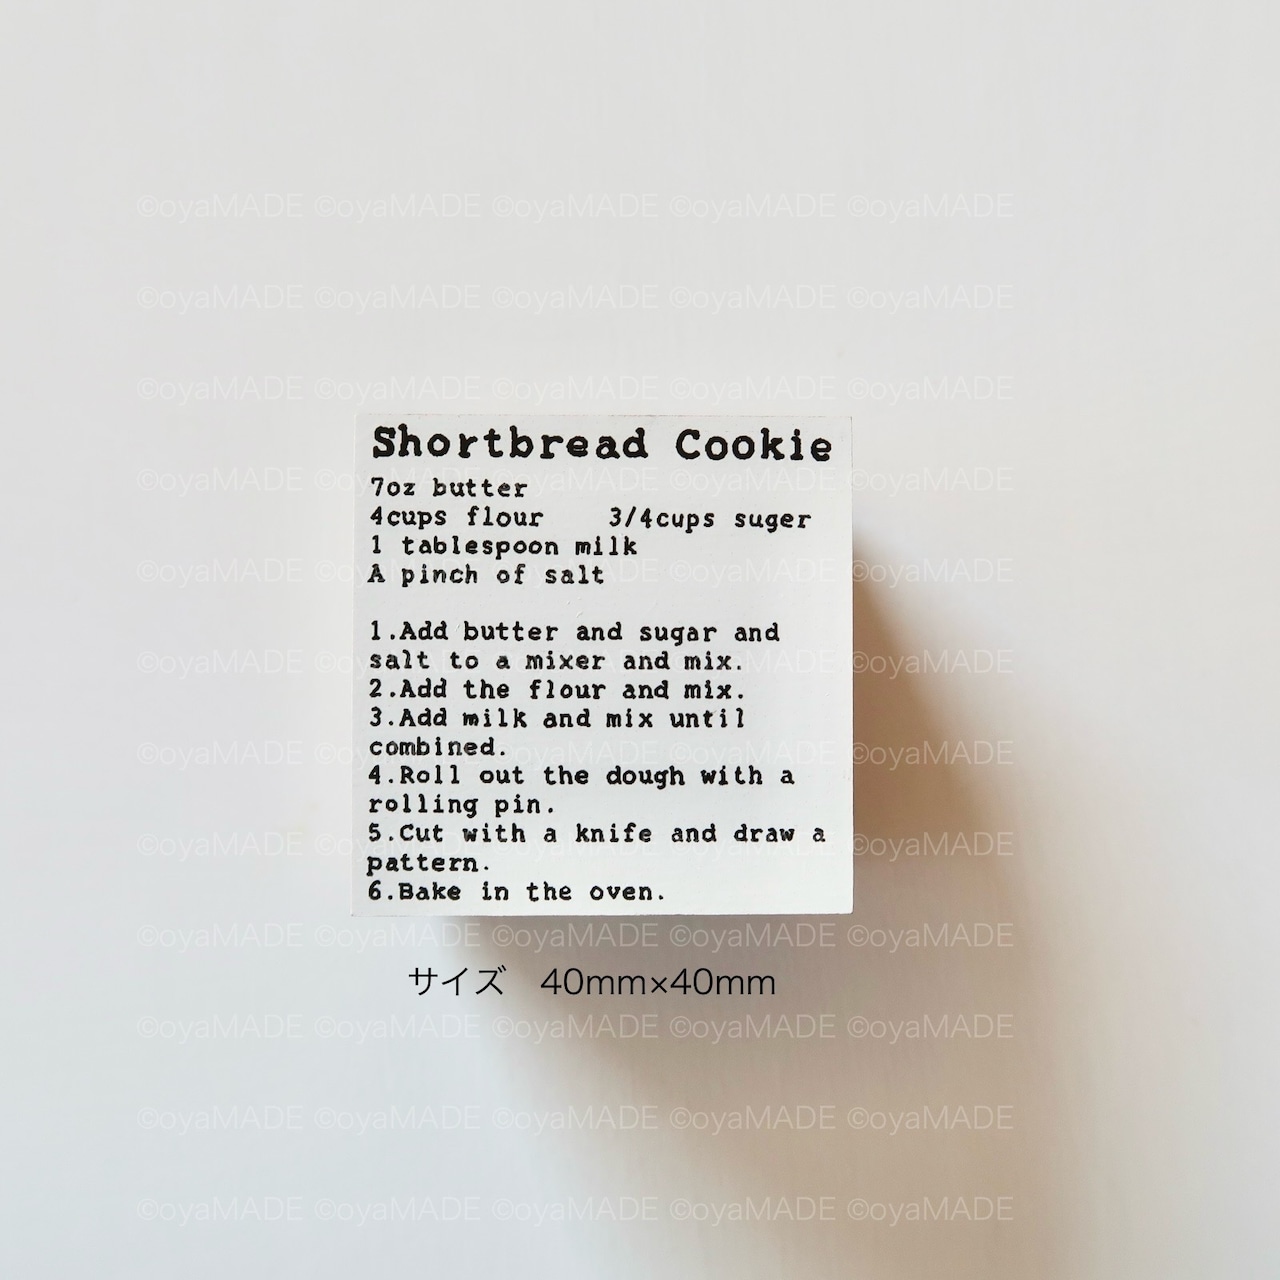 ©oyaMADE ©oyaMADE ©oyaMADE ©oyaMADE ©oyaMADE
©oyaMADE ©oyaMADE ©oyaMADE ©oyaMADE ©oyaMADE
©oyaMADE ©oyaMADE ©oyaMADE ©oyaMADE ©oyaMADE
Shortbread Cookie
7oz butter
4cups flour 3/4cups suger
1 tablespoon milk
A pinch of salt
1.Add butter and sugar and
salt to a mixer and mix.
2.Add the flour and mix.
3.Add milk and mix until
combined.
4.Roll out the dough with a
rolling pin.
5.Cut with a knife and draw a
pattern.
6.Bake in the oven.
©oyaMADE ©oyaMADE ©oyaMADE ©oyaMADE ©oyaMADE
サイズ 40mm×40mm
©oyaMADE ©oyaMADE ©oyaMADE ©oyaMADE ©oyaMADE
©oyaMADE ©oyaMADE ©oyaMADE ©oyaMADE ©oyaMADE
©oyaMADE ©oyaMADE ©oyaMADE ©oyaMADE ©oyaMADE